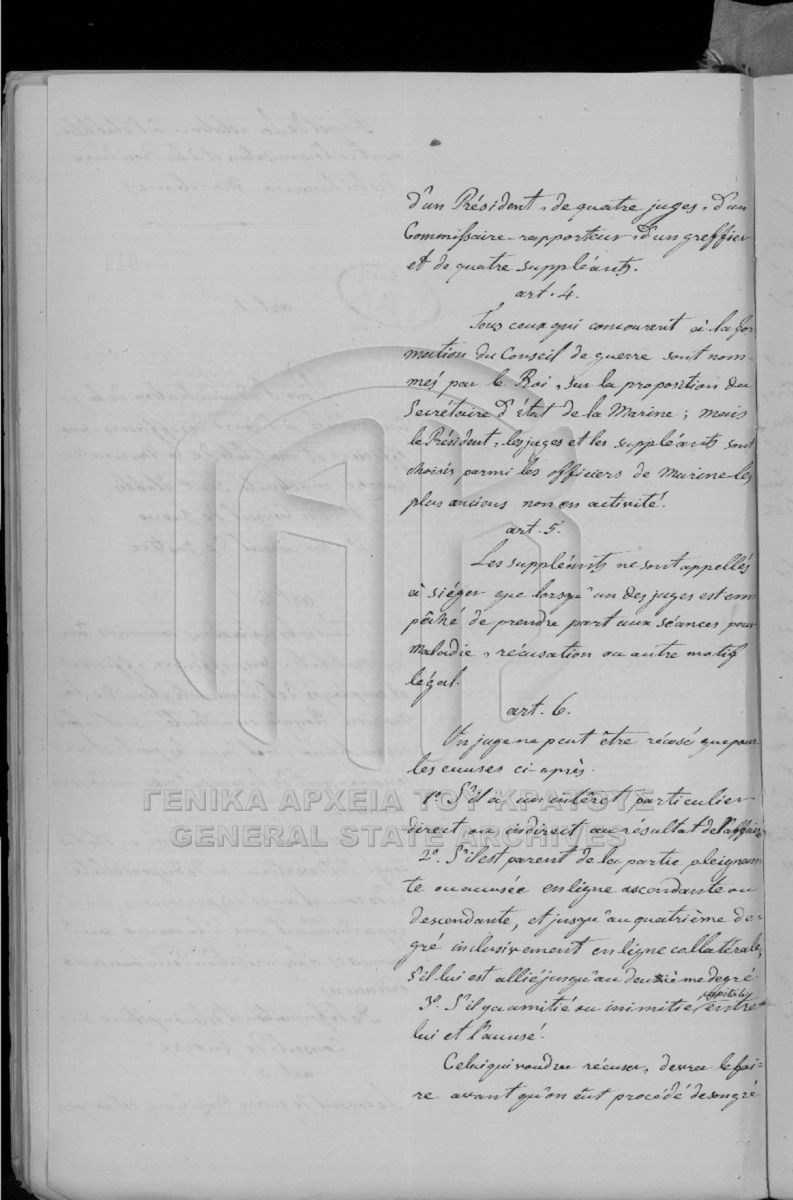 d'un Président, de quatre juges, d'un
Commissaire-rapporteur, d'un greffier
et de quatre suppléants.
art. 4.
Tous ceux qui concourent à la for
mation du Conseil de guerre sont nom-
més par le Roi, sur la proposition du
Secrétaire d'état de la Marine; mais
le Président, les juges et les suppléants sont
choisis parmi les officiers de Marine les
plus anciens non en activité.
art. 5.
Les suppléants ne sont appellés
à siéger que lorsqu'un des juges est em
pêché de prendre part aux séances pour
maladie, récusation ou autre motif
légal.
art. 6.
Un juge ne peut être récusé que pour
les causes ci-après.
1º. S'il a un intéret particulier
direct ou indirect au résultat de l'affaire
2º. S'il est parent de la partie pleignan-
te ou accusée en ligne ascendante ou
descendante, et jusqu'au quatrième de-
gré inclusivement en ligne collatérale,
S'il lui est allié jusqu'au deuxième degré.
3º. S'il y a amitié ou inimitié capitale entre
lui et l'accusé.
Celui qui voudra récuser, devra le fai=
re avant qu'on eût procédé de son gré
ΓΕΝΙΚΑ ΑΡΧΕΙΑ ΤΟΥ ΚΡΑΤΟΥΣ
GENERAL STATE ARCHIVES